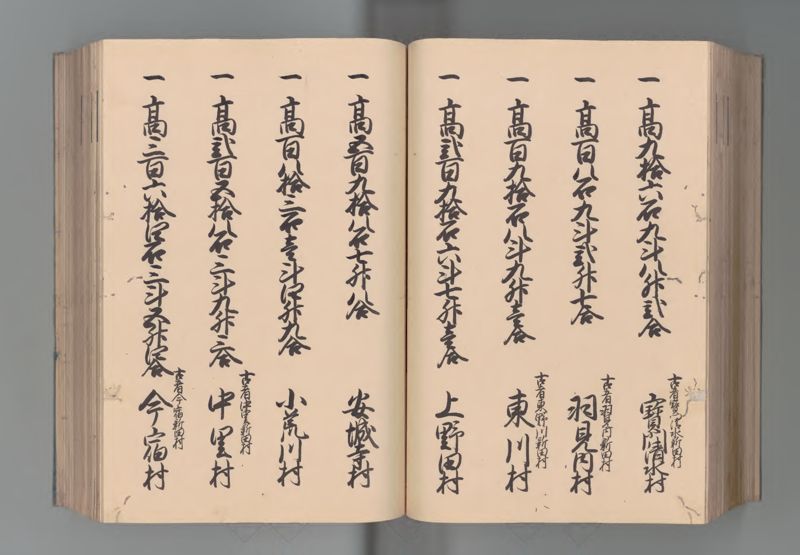 一高九拾六石九斗八升弐合
古者寳川清水新田村
寳川清水村
一高百八石九斗弐升七合
古者羽見内新田村
羽見内村
一高百九拾石八斗九升壱合
古者東野川新田村
東川村
一高弐百九拾石六斗七升壱合
上野田村
一高五百九拾八石七升八合
安城寺村
一高百八拾二石壱斗四升九合
小荒川村
一高弐百五拾八石三斗九升三合
古者中里新田村
中里村
一高三百六拾四石三斗五升四合
古者今宿新田村
今宿村